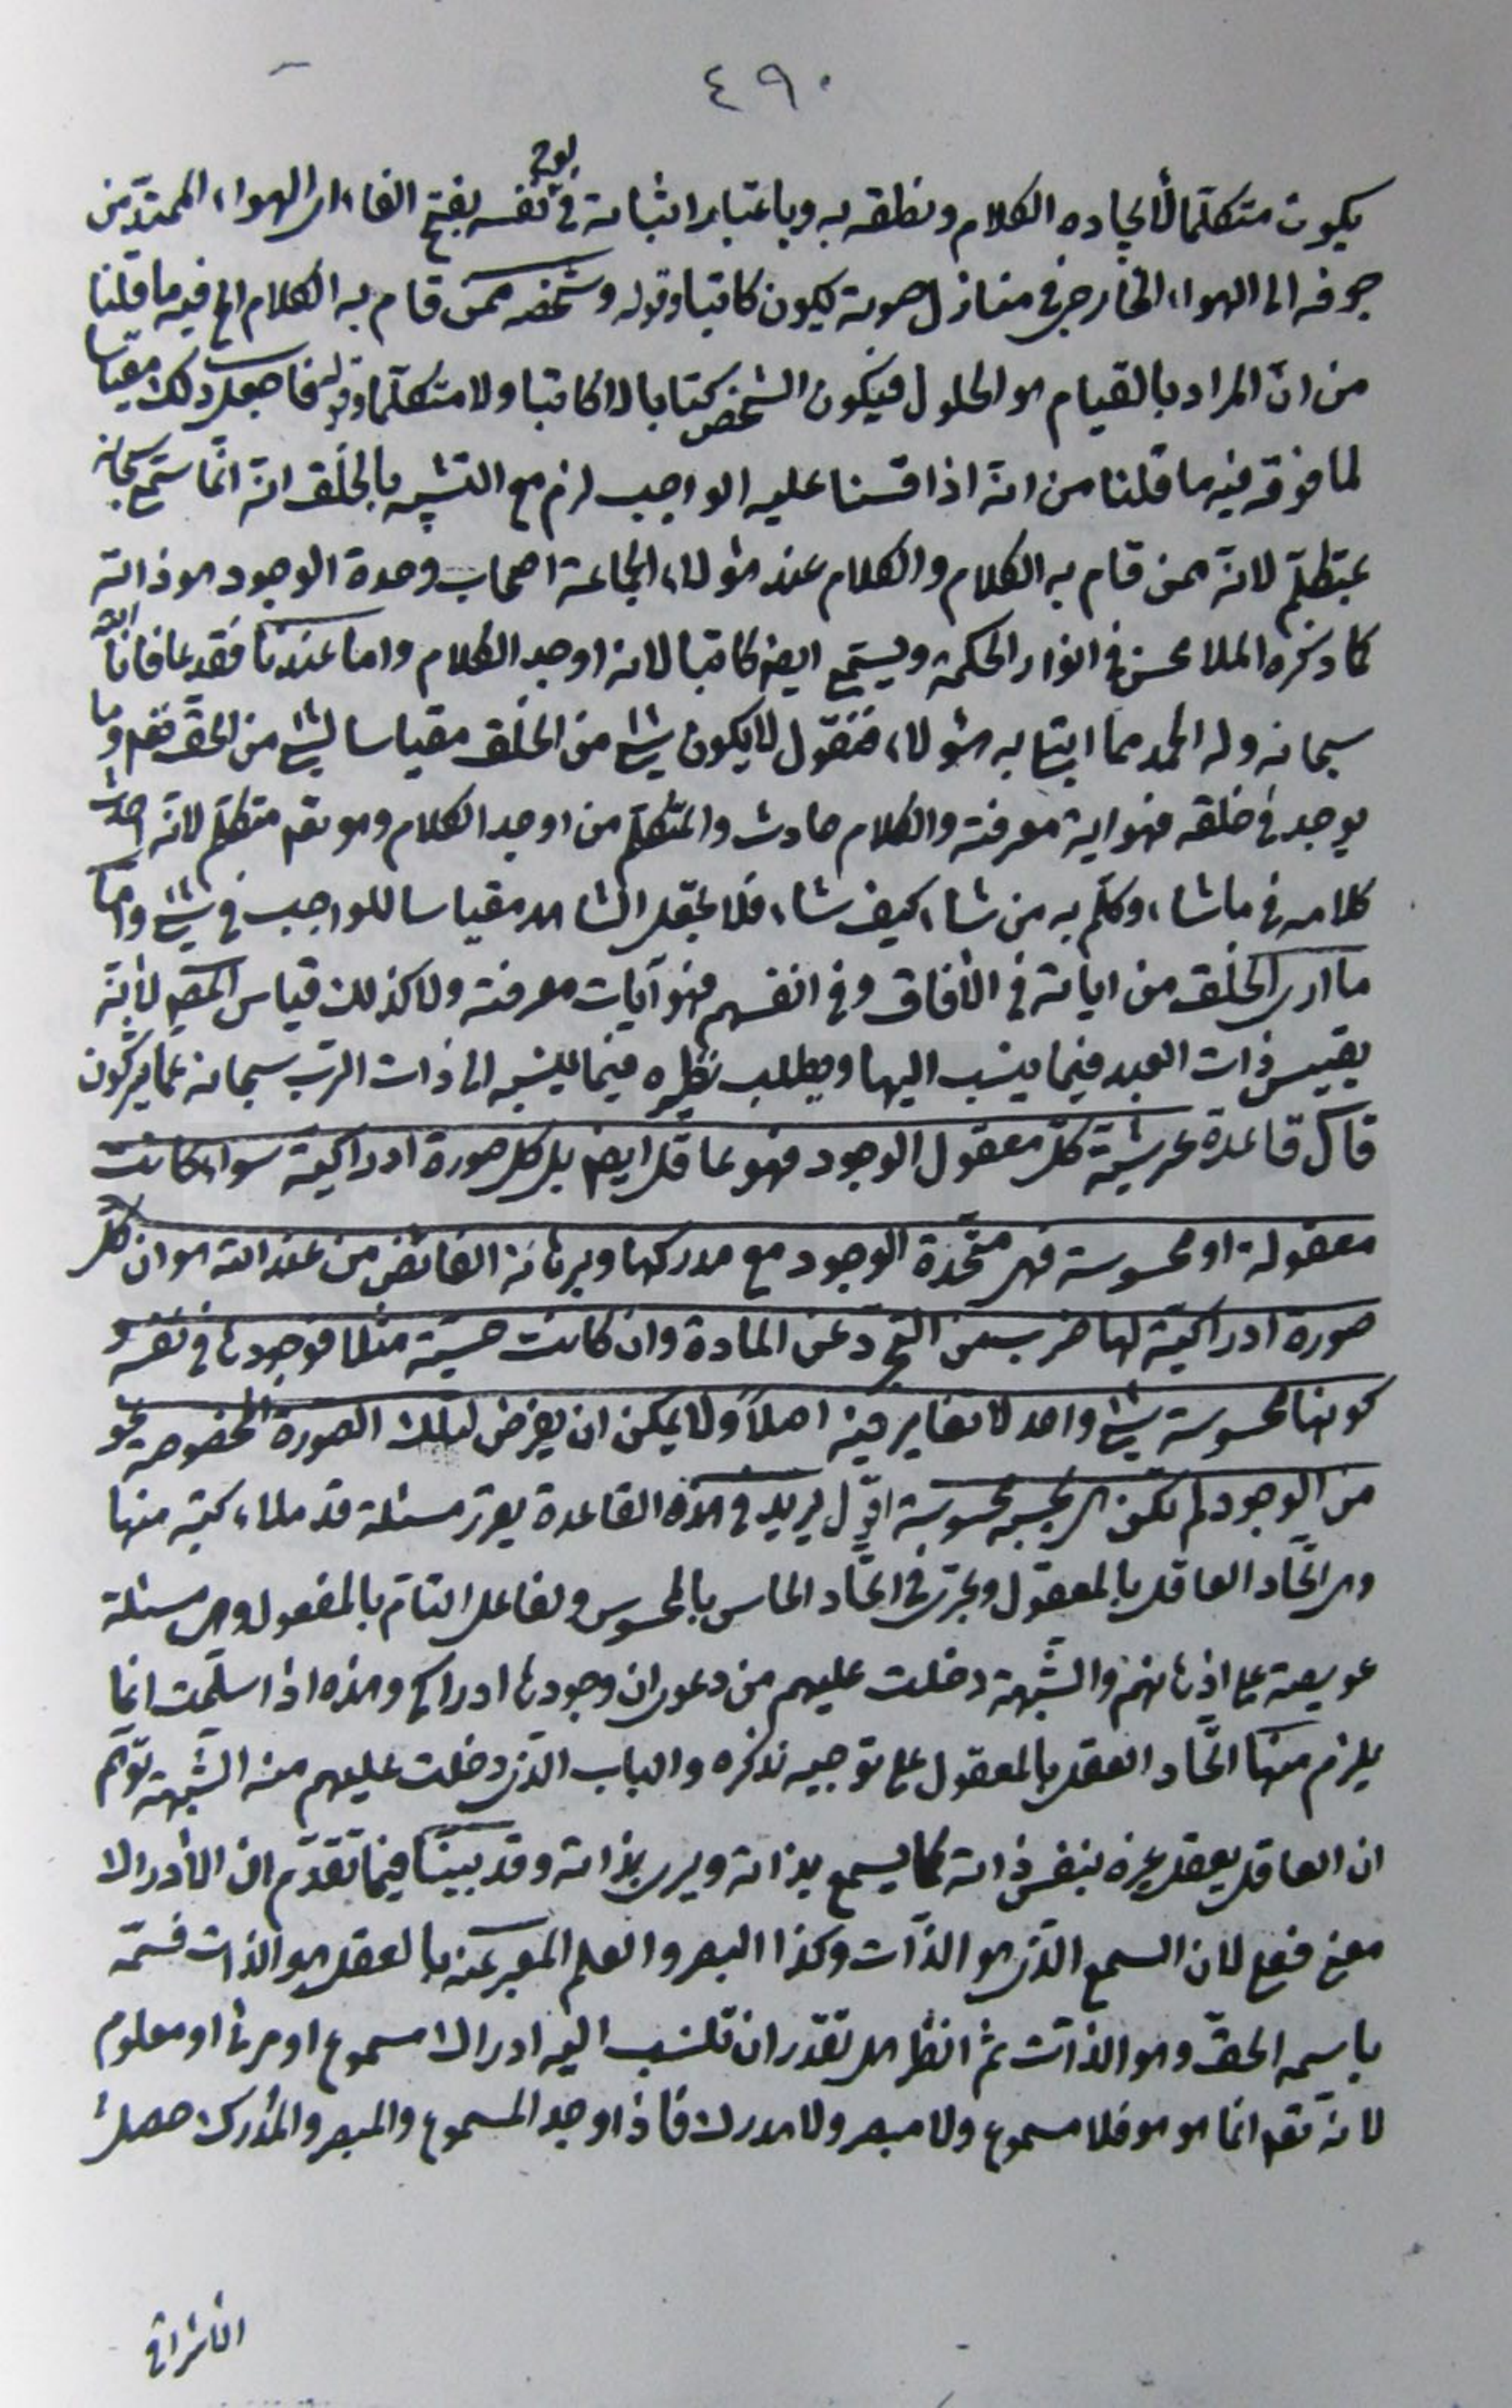 ٤٩٠
لوح
يكون متكلما لايجاده الكلام ونطقه به وباعتبار اثباته في نفسه بفتح الفاء اى الهواء الممتدّ من
جوفه الى الهواء الخارجى في منازل صوته يكون كاتبا وقوله وشخصه ممّن قام به الكلام الخ فيه ما قلنا
من انّ المراد بالقيام هو الحلول فيكون الشخص كتابا لا كاتبا ولا متكلّما وقوله فاجعل ذلك مقياسا
لما فوقه فيه ما قلنا من انّه اذا قسنا عليه الواجب لزم مع التشبيه بالخلق انه انّما سمّى سبحانه
بمتكلّم لانّه ممن قام به الكلام والكلام عند هؤلاء الجماعة اصحاب وحدة الوجود هو ذاته
كما ذكره الملا محسن في انوار الحكمة ويسمّى ايضا كاتبا لانه اوجد الكلام واما عندنا فقد عافانا الله
سبحانه وله الحمد مما ابتلى به هؤلاء فنقول لا يكون شئ من الخلق مقياسا لشئ من الحقّ نعم وما
يوجد في خلقه فهو اية معرفته والكلام حادث والمتكلّم من اوجد الكلام وهو تعم متكلّم لانّه احدث
كلامه في ما شاء وكلّم به من شاء كيف شاء فلا تجعل الشاهد مقياسا للواجب في شئ وامّا
ما ارى الخلق من اياته في الافاق وفي انفسهم فهو آيات معرفته ولا كذلك قياس المصم لانّه
يقيس ذات العبد فيما ينسب اليها ويطلب نظيره فيما ينسبه الى ذات الرب سبحانه عمّا يشركون
قال قاعدة عرشيّة كلّ معقول الوجود فهو عاقل ايضا بل كل صورة ادراكيّة سواء كانت
معقولة او محسوسة فهى متّحدة الوجود مع مدركها وبرهانه الفائض من عند الله هو ان كلّ
صورة ادراكيّة لها ضرب من التجرّد عن المادة وان كانت حسّية مثلا فوجودها في نفسه و
كونها محسوسة شئ واحد لا تغاير فيه اصلاً ولا يمكن ان يفرض لتلك الصورة المخصوصة نحو
من الوجود لم تكن هى بحسبه محسوسة اقول يريد في هذه القاعدة يقرّر مسئلة قد ملاء كتبه منها
وهى اتّحاد العاقل بالمعقول ويجرى في اتّحاد الحاس بالمحسوس والفاعل التام بالمفعول وهى مسئلة
عويصة على اذهانهم والشّبهة دخلت عليهم من دعوى ان وجودها ادراكى وهذه اذا سلّمت انما
يلزم منها اتّحاد العقل بالمعقول على توجيه نذكره والباب الّذى دخلت عليهم منه الشّبهة توهّم
ان العاقل يعقل غيره بنفس ذاته كما يسمع بذاته ويرى بذاته وقد بيّنا فيما تقدّم ان الادراك
معنى فعلى لان السمع الّذى هو الذّات وكذا البصر والعلم المعبر عنه بالعقل هو الذات فسمّه
باسمه الحقّ وهو الذّات ثم انظر هل تقدر ان تنسب اليه ادراك مسموع او مرئى او معلوم
لانه تعم انما هو هو فلا مسموع ولا مبصر ولا مدرك فاذا وجد المسموع والمبصر والمدرك حصل
الاشراقى